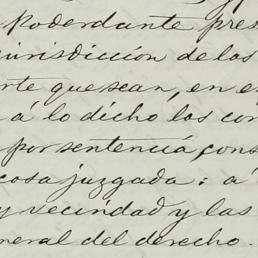 poderdante pres
jurisdicción de los
rte que sean, en e
á lo dicho los con
por sentencia, cons
cosa juzgada: á
y vecindad y las
neral del derecho.